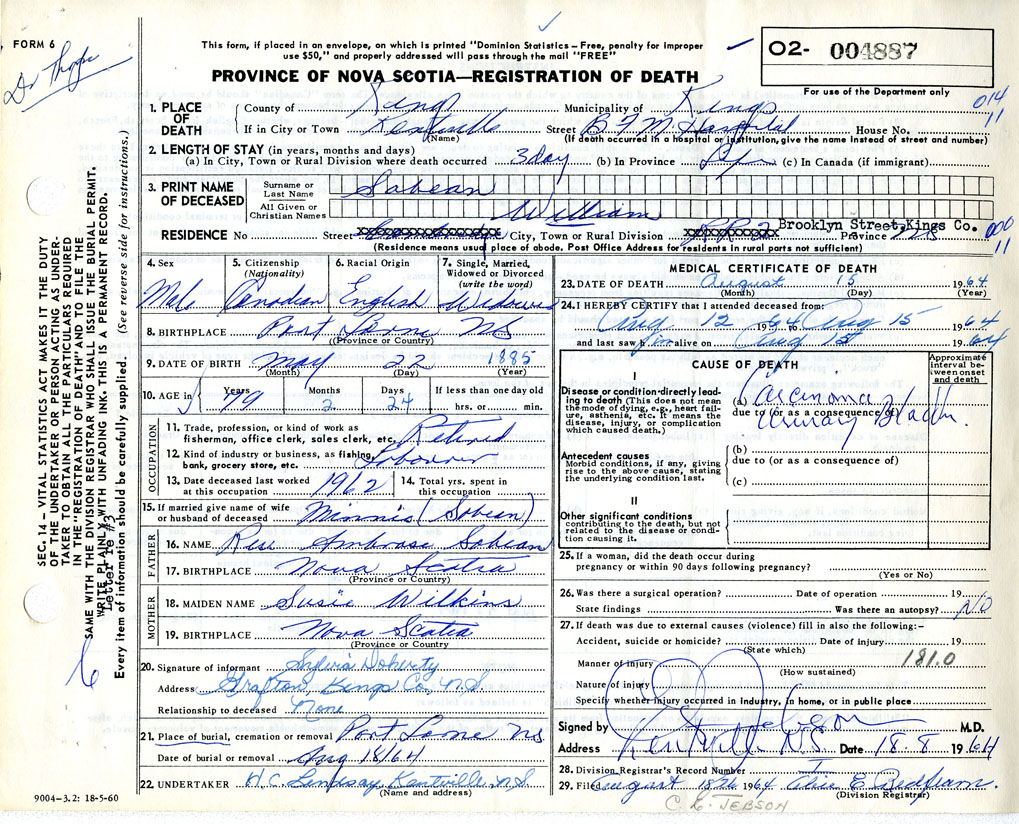 FORM 6
Dr Thorpe
This form, if placed in an envelope, on which is printed "Dominion Statistics – Free, penalty for improper
use $50," and properly addressed will pass through the mail "FREE"
PROVINCE OF NOVA SCOTIA—REGISTRATION OF DEATH
O2- 004887
For use of the Department only
014
11
1. PLACE OF DEATH { County of Kings Municipality of Kings
If in City or Town Kentville Street B F M Hospital House No.
(Name) (If death occurred in a hospital or institution, give the name instead of street and number)
2. LENGTH OF STAY (in years, months and days)
(a) In City, Town or Rural Division where death occurred 3 day (b) In Province Life (c) In Canada (if immigrant)
3. PRINT NAME OF DECEASED
Surname or Last Name Sabean
All Given or Christian Names William
RESIDENCE No Street City, Town or Rural Division R R 2 Brooklyn Street, Kings Co. Province NS
000
11
(Residence means usual place of abode. Post Office Address for residents in rural parts not sufficient)
4. Sex Male
5. Citizenship (Nationality) Canadian
6. Racial Origin English
7. Single, Married, Widowed or Divorced (write the word) Widower
8. BIRTHPLACE Port Lorne NS
(Province or Country)
9. DATE OF BIRTH May 22 1885
(Month) (Day) (Year)
10. AGE in Years 79 Months 2 Days 24 If less than one day old hrs. or min.
OCCUPATION
11. Trade, profession, or kind of work as fisherman, office clerk, sales clerk, etc. Retired
12. Kind of industry or business, as fishing, bank, grocery store, etc. Labourer
13. Date deceased last worked at this occupation 1962
14. Total yrs. spent in this occupation
15. If married give name of wife or husband of deceased Minnie (Sabean)
FATHER
16. NAME Rev Ambrose Sabean
17. BIRTHPLACE Nova Scotia
(Province or Country)
MOTHER
18. MAIDEN NAME Susie Wilkins
19. BIRTHPLACE Nova Scotia
(Province or Country)
20. Signature of informant Sylvia Doherty
Address Grafton, Kings Co, N.S.
Relationship to deceased None
21. Place of burial, cremation or removal Port Lorne NS
Date of burial or removal Aug 18/64
22. UNDERTAKER H.C. Lindsay Kentville N.S.
(Name and address)
9004–3.2: 18-5-60
MEDICAL CERTIFICATE OF DEATH
23. DATE OF DEATH August 15 1964
(Month) (Day) (Year)
24. I HEREBY CERTIFY that I attended deceased from:
Aug 12 1964 to Aug 15 1964
and last saw h alive on Aug 15 1964
CAUSE OF DEATH
Approximate interval between onset and death
I
Disease or condition directly leading to death (This does not mean the mode of dying, e.g., heart failure, asthenia, etc. It means the disease, injury, or complication which caused death.)
(a) Carcinoma
due to (or as a consequence of)
Urinary Bladder.
Antecedent causes
Morbid conditions, if any, giving rise to the above cause, stating the underlying condition last.
(b)
due to (or as a consequence of)
(c)
II
Other significant conditions
contributing to the death, but not related to the disease or condition causing it.
25. If a woman, did the death occur during
pregnancy or within 90 days following pregnancy?
(Yes or No)
26. Was there a surgical operation? Date of operation 19
State findings Was there an autopsy? NO
27. If death was due to external causes (violence) fill in also the following:–
Accident, suicide or homicide? Date of injury 19
(State which)
181.0
Manner of injury
(How sustained)
Nature of injury
Specify whether injury occurred in industry, in home, or in public place
Signed by M.D.
Address Kentville N.S. Date 18.8 1964
28. Division Registrar's Record Number
29. Filed August 18th 1964
(Division Registrar)
C. L. JEBSON
SEC. 14 – VITAL STATISTICS ACT MAKES IT THE DUTY
OF THE UNDERTAKER OR PERSON ACTING AS UNDER-
TAKER TO OBTAIN ALL THE PARTICULARS REQUIRED
IN THE "REGISTRATION OF DEATH" AND TO FILE THE
SAME WITH THE DIVISION REGISTRAR WHO SHALL ISSUE THE BURIAL PERMIT.
WRITE PLAINLY WITH UNFADING INK. THIS IS A PERMANENT RECORD.
Letter re #3
Every item of information should be carefully supplied. (See reverse side for instructions.)
6